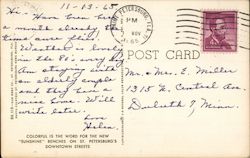 11-13-65
Hi. Have been here
a month already. The
time sure flies.
Weather is lovely,
in the 80's every
day. Am staying with
an elderly couple
and they have a
nice home. Will
write later.
Love
Helen
COLORFUL IS THE WORD FOR THE NEW
"SUNSHINE" BENCHES ON ST. PETERSBURG'S
DOWNTOWN STREETS
ST. PETERSBURG, FLA.
PM
NOV
1965
POST CARD
Mr. & Mrs. E. Miller
1315 N. Central Ave
Duluth 7, Minn.